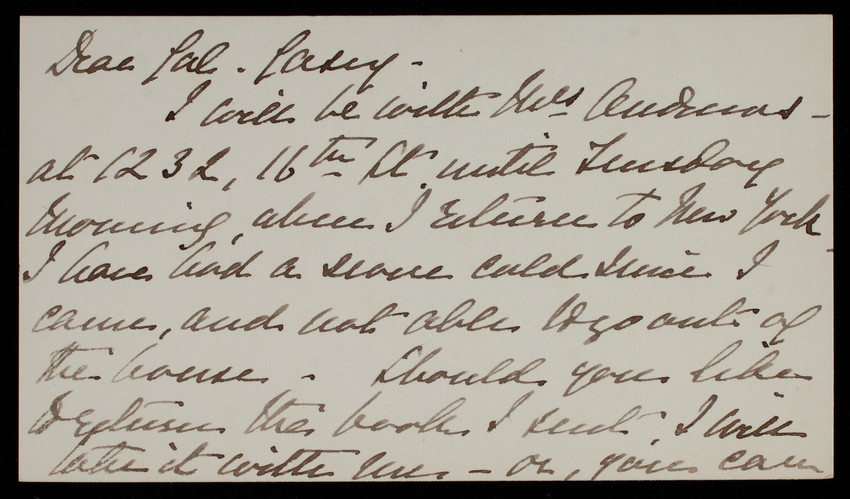 Dear Gal. Casey -
I will be with Mrs Andrews -
at 1232, 16th St. until Tuesday
morning, when I return to New York -
I have had a severe cold since I
came, and not able to go out of
the house - Should you like
to return the book I sent I will
take it with me - or, you can